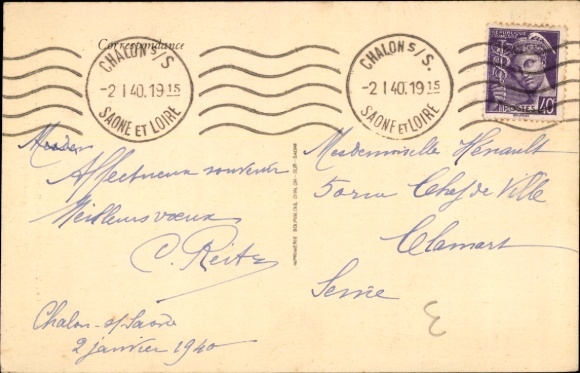 Correspondance
CHALON S/S
-2 I 40. 19 15
SAONE ET LOIRE
CHALON S/S.
-2 I 40. 19 15
SAONE ET LOIRE
REPUBLIQUE FRANÇAISE
POSTES 40c
Affectueux souvenir
Meilleurs voeux
C. Reitz
Chalon-s/Saone
2 janvier 1940
IMPRIMERIE BOURGEOIS, CHALON-SUR-SAONE
Mademoiselle Hénault
50 rue Chef de Ville
Clamart
Seine